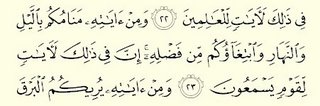 فِى ذَٰلِكَ لَءَايَٰتٍ لِّلْعَٰلِمِينَ ٢٢ وَمِنْ ءَايَٰتِهِۦ مَنَامُكُم بِٱلَّيْلِ
وَٱلنَّهَارِ وَٱبْتِغَآؤُكُم مِّن فَضْلِهِۦٓ ۚ إِنَّ فِى ذَٰلِكَ لَءَايَٰتٍ
لِّقَوْمٍ يَسْمَعُونَ ٢٣ وَمِنْ ءَايَٰتِهِۦ يُرِيكُمُ ٱلْبَرْقَ